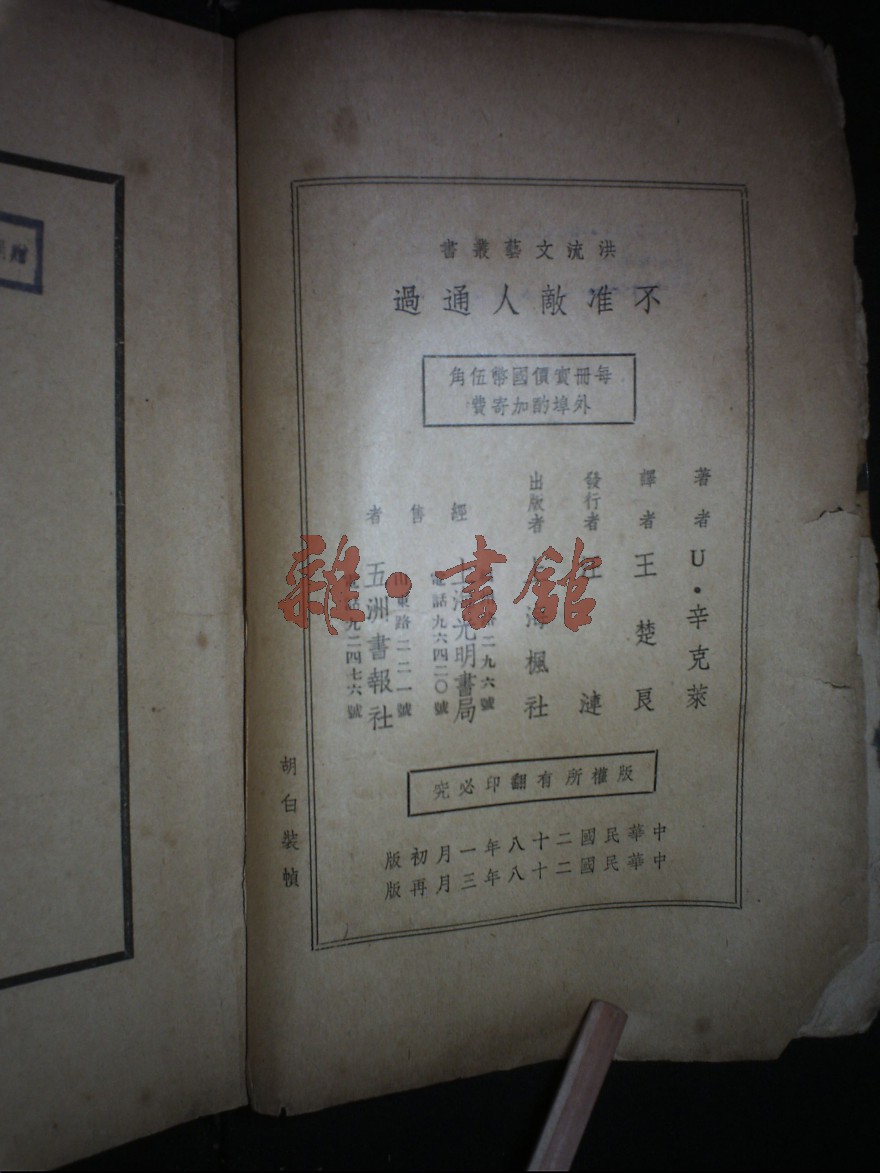 洪流文藝叢書
不准敵人通過
每冊實價國幣伍角
外埠酌加寄費
著者 U·辛克萊
譯者 王楚良
發行者 漣
出版者 海楓社
經售者
上海光明書局
二九六號
電話九六四二〇號
五洲書報社
山東路二二一號
電話九二四七六號
版權所有翻印必究
中華民國二十八年一月初版
中華民國二十八年三月再版
胡白裝幀
雜·書館